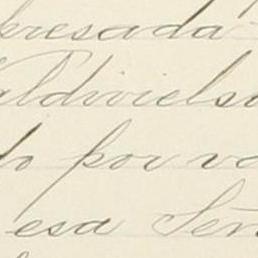 presada
Valdivielso
do por va
esa Señ